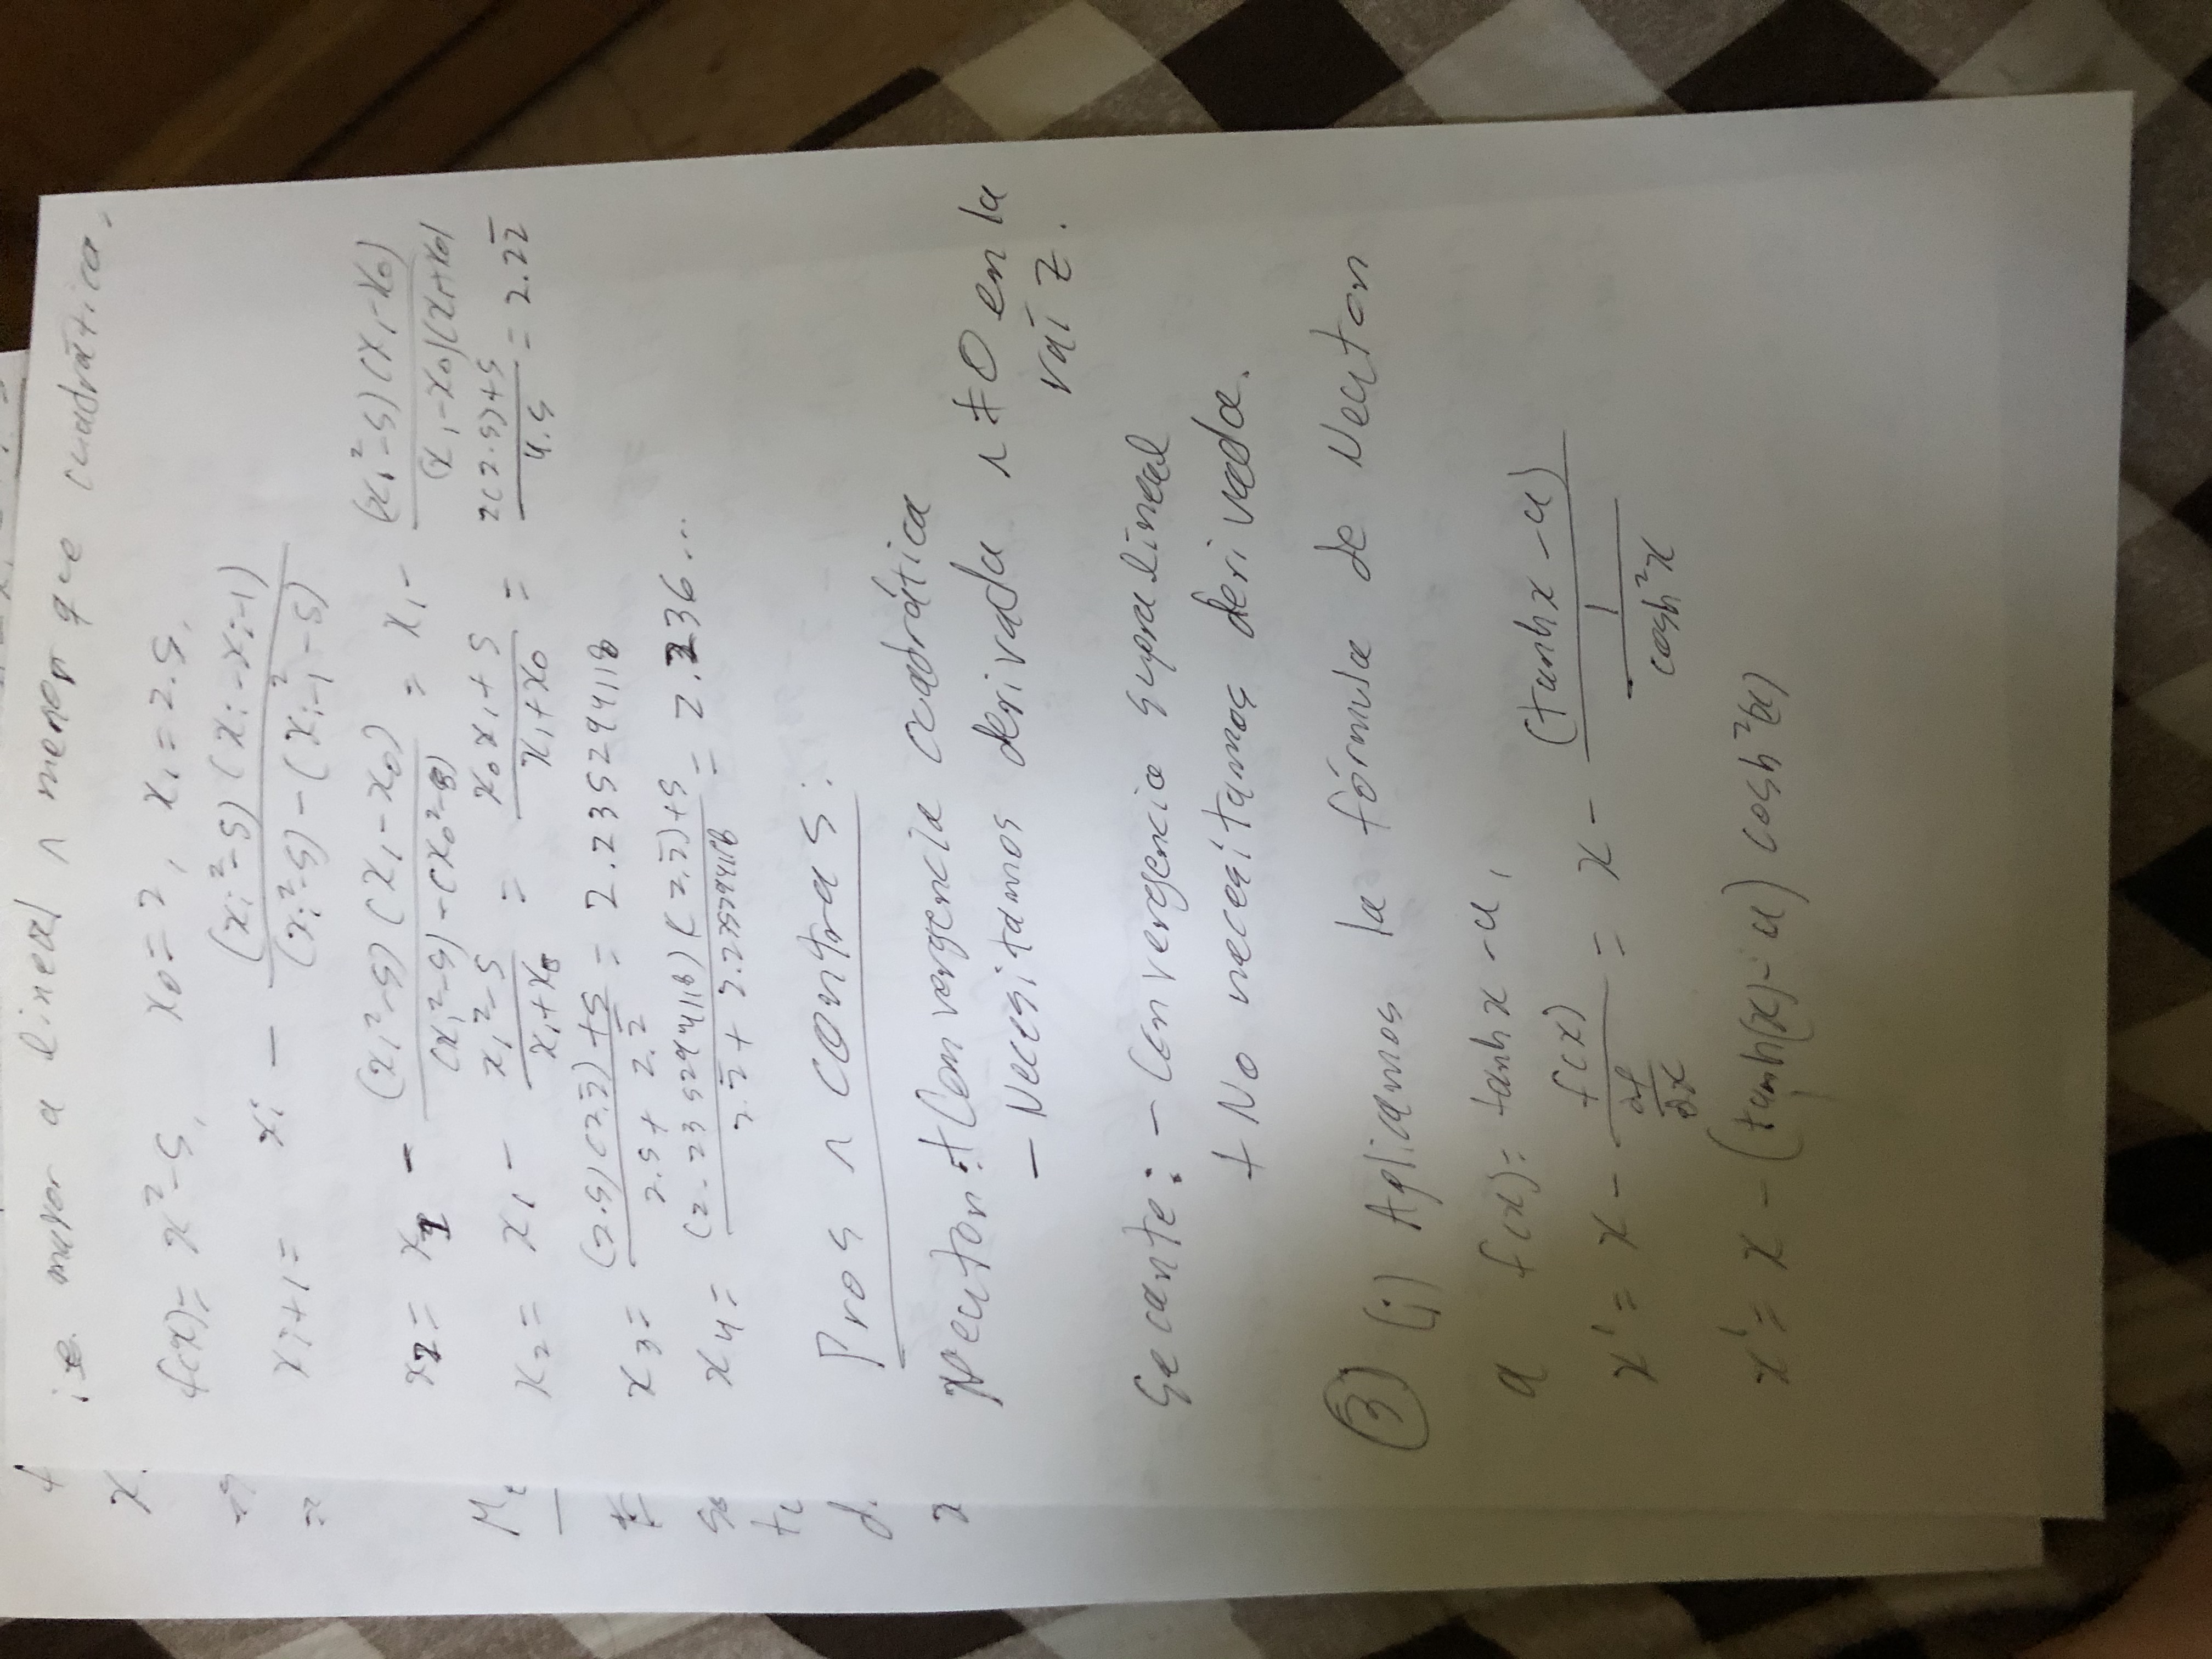 i.e. mayor a lineal ∧ menor que cuadrática,
f(x)= x²-5, x₀=2, x₁=2.5,
xᵢ₊₁= xᵢ - (xᵢ²-5)(xᵢ-xᵢ₋₁) / (xᵢ²-5)-(xᵢ₋₁²-5)
x₂= x₁ - (x₁²-5)(x₁-x₀) / (x₁²-5)-(x₀²-5) = x₁ - (x₁²-5)(x₁-x₀) / (x₁-x₀)(x₁+x₀)
x₂= x₁ - x₁²-5 / x₁+x₀ = x₀x₁+5 / x₁+x₀ = 2(2.5)+5 / 4.5 = 2.22̅
x₃= (2.5)(2.2̅)+5 / 2.5+2.2̅ = 2.235294118
x₄= (2.235294118)(2.2̅)+5 / 2.2̅+2.235294118 = 2.236...
Pros ∧ contras:
Newton: + Convergencia cuadrática
- Necesitamos derivada ∧ ≠0 en la
raíz.
Secante: - Convergencia supralineal
+ No necesitamos derivada.
③ (i) Aplicamos la fórmula de Newton
a f(x)= tanhx - u,
x' = x - f(x) / ∂f/∂x = x - (tanhx - u) / 1/cosh²x
x' = x - (tanh(x) - u) cosh²(x)
t
x.
=
M
so
d.
x